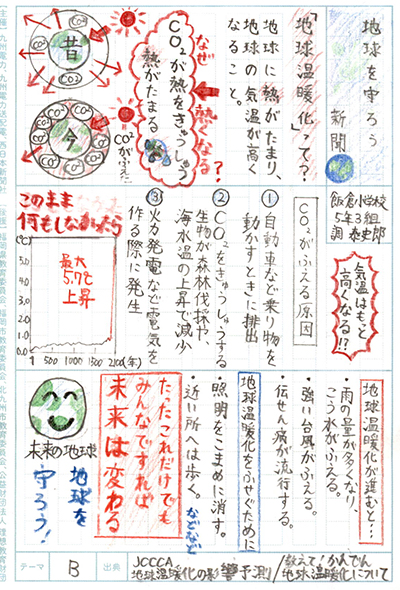 地球を守ろう
新聞
飯倉小学校
5年3組
調 泰史郎
「地球温暖化」って?
地球に熱がたまり、
地球の気温が高く
なること。
なぜ
熱くなる
?
CO₂が熱をきゅうしゅう
熱がたまる
昔
CO₂
CO₂
CO₂
今
CO₂がふえた
気温はもっと
高くなる!?
CO₂がふえる原因
① 自動車など乗り物を
動かすときに排出
② CO₂をきゅうしゅうする
生物が森林伐採や、
海水温の上昇で減少
③ 火力発電など電気を
作る際に発生
このまま
何もしなかったら
(℃)
最大
5.7℃
上昇
5.0
4.0
3.0
2.0
1.0
0.0
1 500 1000 1500 2100(年)
地球温暖化が進むと…
・雨の量が多くなり、
こう水がふえる。
・強い台風がふえる。
・伝せん病が流行する。
地球温暖化をふせぐために
・照明をこまめに消す。
・近い所へは歩く。
などなど
たったこれだけでも
みんなですれば
未来は変わる
未来の地球
地球を
守ろう!
テーマ
B
出典
JCCCA
地球温暖化の影響予測
/教えて!かんでん
/地球温暖化について